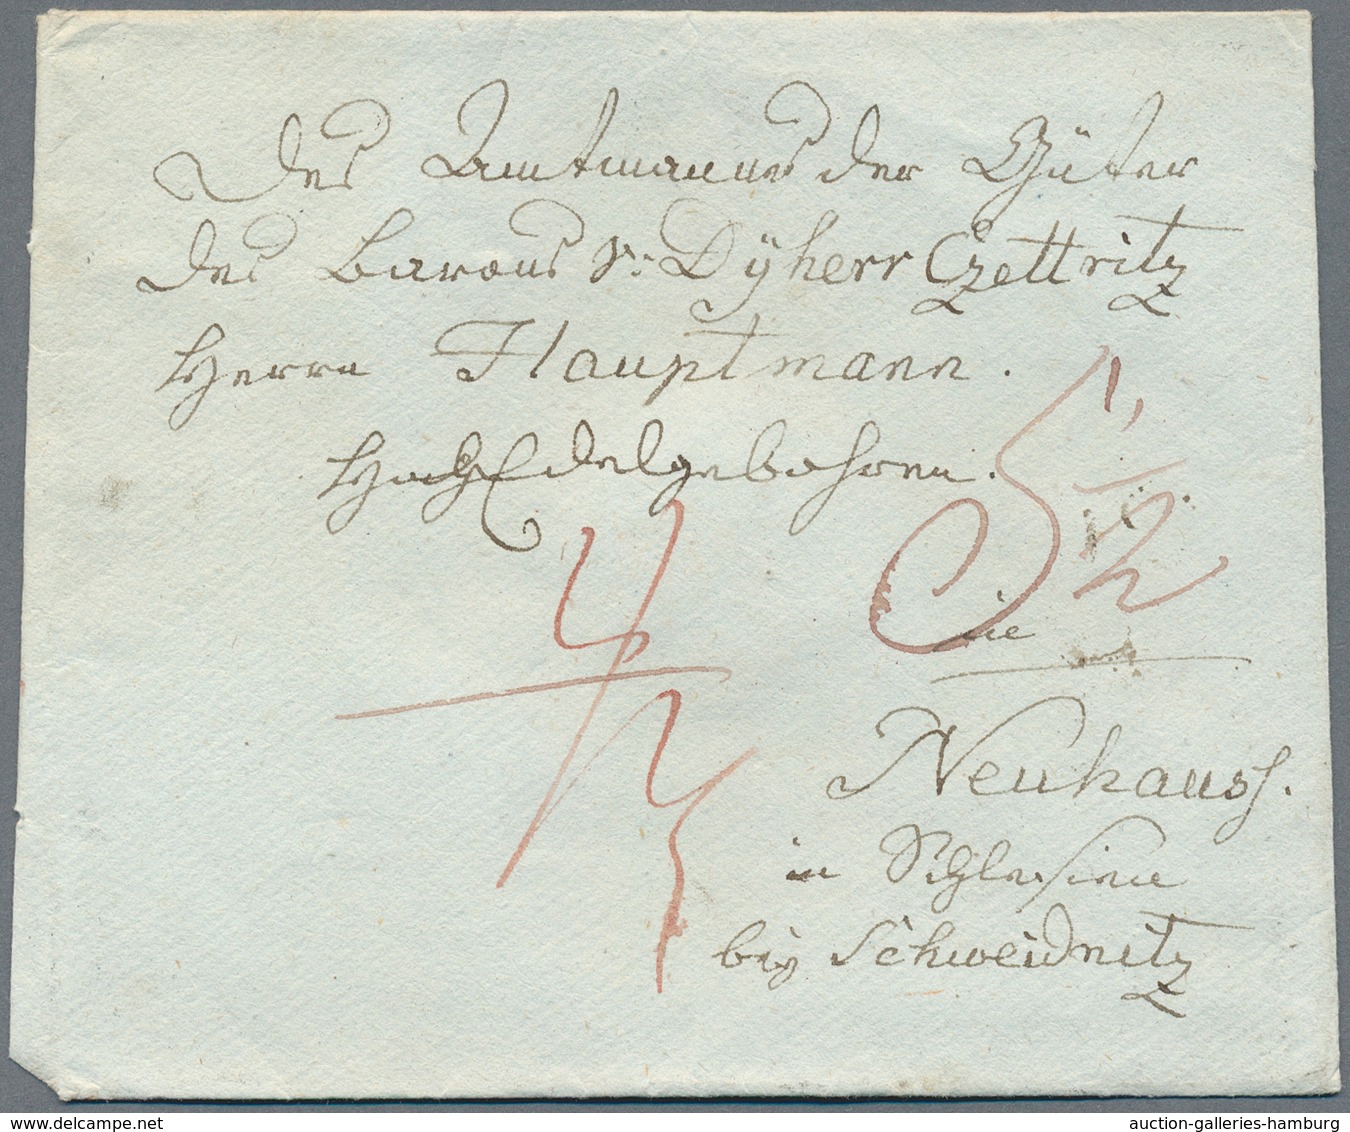 Des Amtmanns der Güter
des Barons v: Dÿherr Czettritz
Herrn Hauptmann.
HochEdelgebohren.
5 1/2
in
Neuhauss.
in Schlesien
bey Schweidnitz
delcampe.net
auction-galleries-hamburg